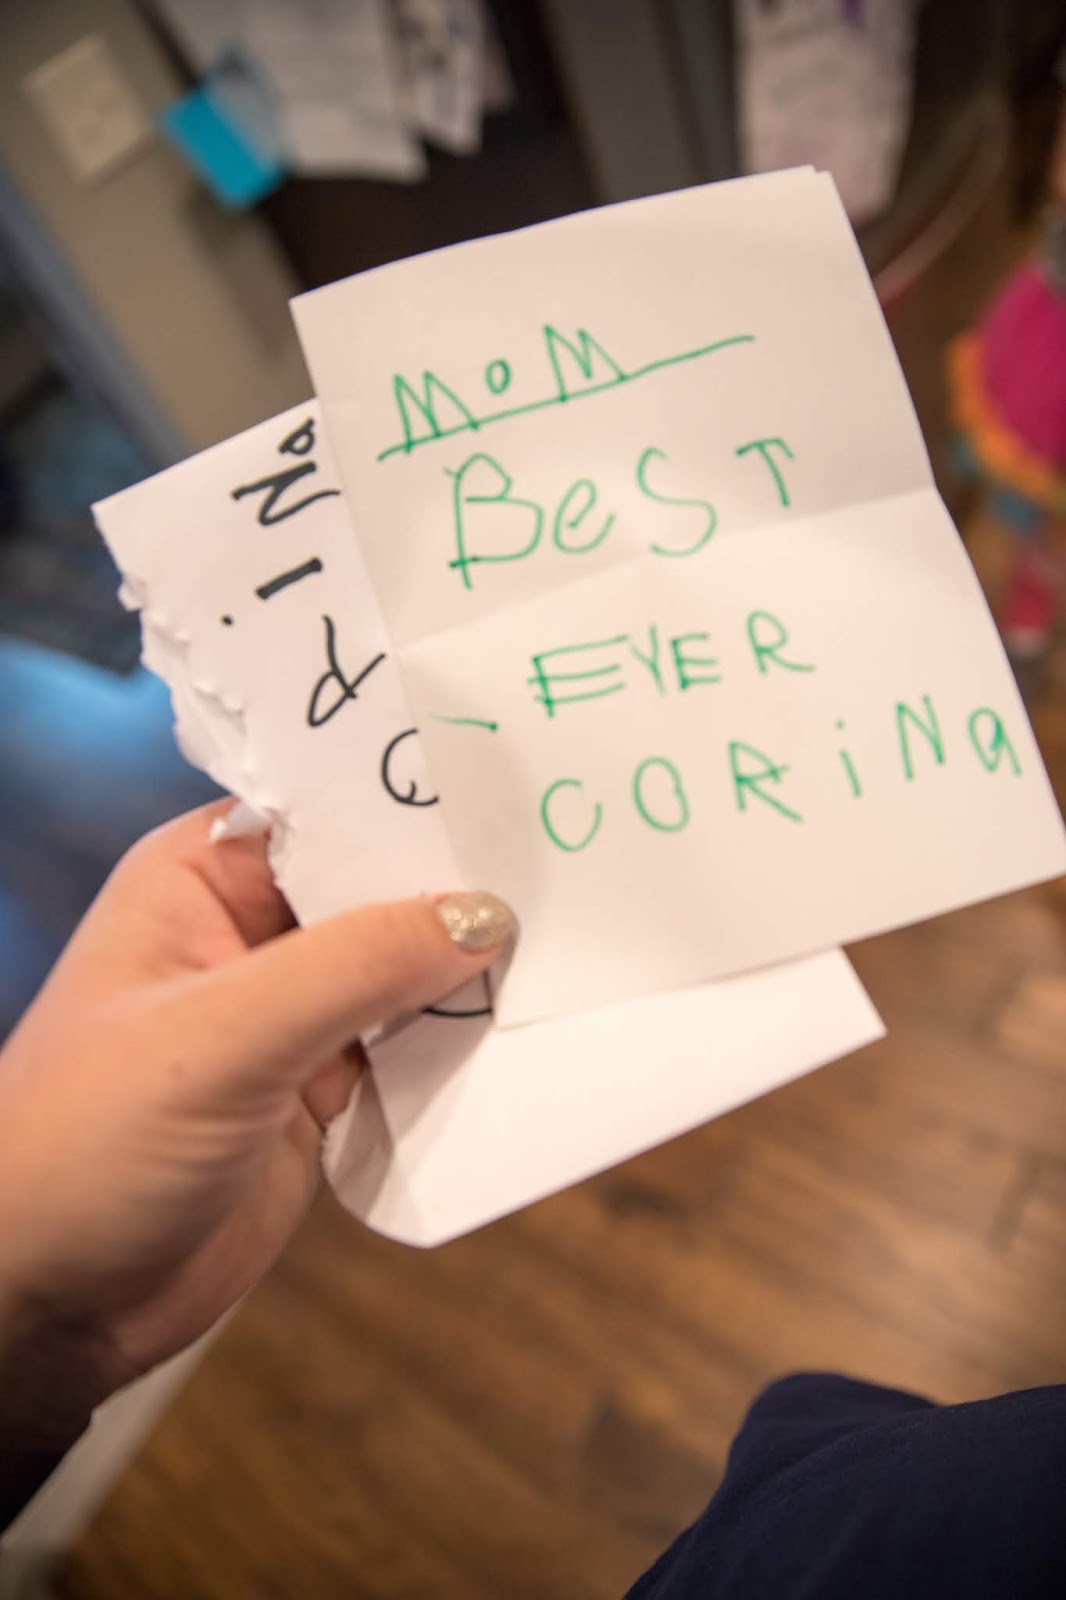 MoM
BeST
EYER
CORiNa
CORiNa